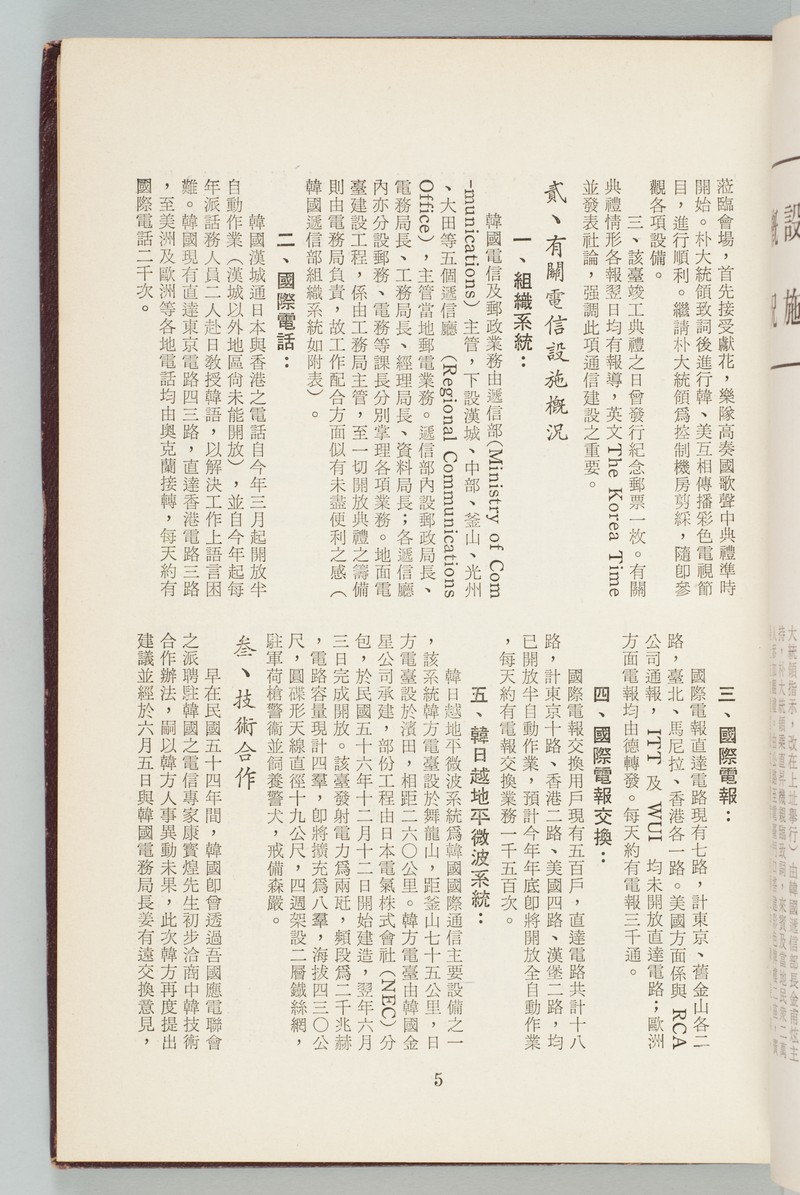 蒞臨會場，首先接受獻花，樂隊高奏國歌聲中典禮準時
開始。朴大統領致詞後進行韓、美互相傳播彩色電視節
目，進行順利。繼請朴大統領爲控制機房剪綵，隨卽參
觀各項設備。
三、該臺竣工典禮之日會發行紀念郵票一枚。有關
典禮情形各報翌日均有報導，英文The Korea Time
並發表社論，强調此項通信建設之重要。
貳、有關電信設施概况
一、組織系統：
韓國電信及郵政業務由遞信部(Ministry of Com
-munications) 主管，下設漢城、中部、釜山、光州
、大田等五個遞信廳 (Regional Communications
Office)，主管當地郵電業務。遞信部內設郵政局長、
電務局長、工務局長、經理局長、資料局長；各遞信廳
內亦分設郵務、電務等課長分別掌理各項業務。地面電
臺建設工程，係由工務局主管，至一切開放典禮之籌備
則由電務局負責，故工作配合方面似有未盡便利之感（
韓國遞信部組織系統如附表）。
二、國際電話：
韓國漢城通日本與香港之電話自今年三月起開放半
自動作業（漢城以外地區尙未能開放），並自今年起每
年派話務人員二人赴日教授韓語，以解決工作上語言困
難。韓國現有直達東京電路四三路，直達香港電路三路
，至美洲及歐洲等各地電話均由奧克蘭接轉，每天約有
國際電話二千次。
三、國際電報：
國際電報直達電路現有七路，計東京、舊金山各二
路，臺北、馬尼拉、香港各一路。美國方面係與 RCA
公司通報，ITT 及 WUI 均未開放直達電路；歐洲
方面電報均由德轉發。每天約有電報三千通。
四、國際電報交換：
國際電報交換用戶現有五百戶，直達電路共計十八
路，計東京十路、香港二路、美國四路、漢堡二路，均
已開放半自動作業，預計今年年底卽將開放全自動作業
，每天約有電報交換業務一千五百次。
五、韓日越地平微波系統：
韓日越地平微波系統爲韓國國際通信主要設備之一
，該系統韓方電臺設於舞龍山，距釜山七十五公里，日
方電臺設於濱田，相距二六〇公里。韓方電臺由韓國金
星公司承建，部份工程由日本電氣株式會社(NEC)分
包，於民國五十六年十二月十二日開始建造，翌年六月
三日完成開放。該臺發射電力爲兩瓩，頻段爲二千兆赫
，電路容量現計四羣，卽將擴充爲八羣，海拔四三〇公
尺，圓碟形天線直徑十九公尺，四週架設二層鐵絲網，
駐軍荷槍警衞並飼養警犬，戒備森嚴。
叁、技術合作
早在民國五十四年間，韓國卽曾透過吾國應電聯會
之派聘駐韓國之電信專家康寶煌先生初步洽商中韓技術
合作辦法，嗣以韓方人事異動未果，此次韓方再度提出
建議並經於六月五日與韓國電務局長姜有遠交換意見，
5